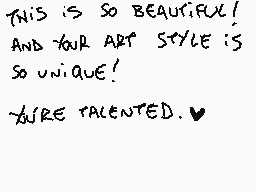 THIS IS SO BEAUTIFUL!
AND YOUR ART STYLE IS
SO UNIQUE!
YOU'RE TALENTED. ♥